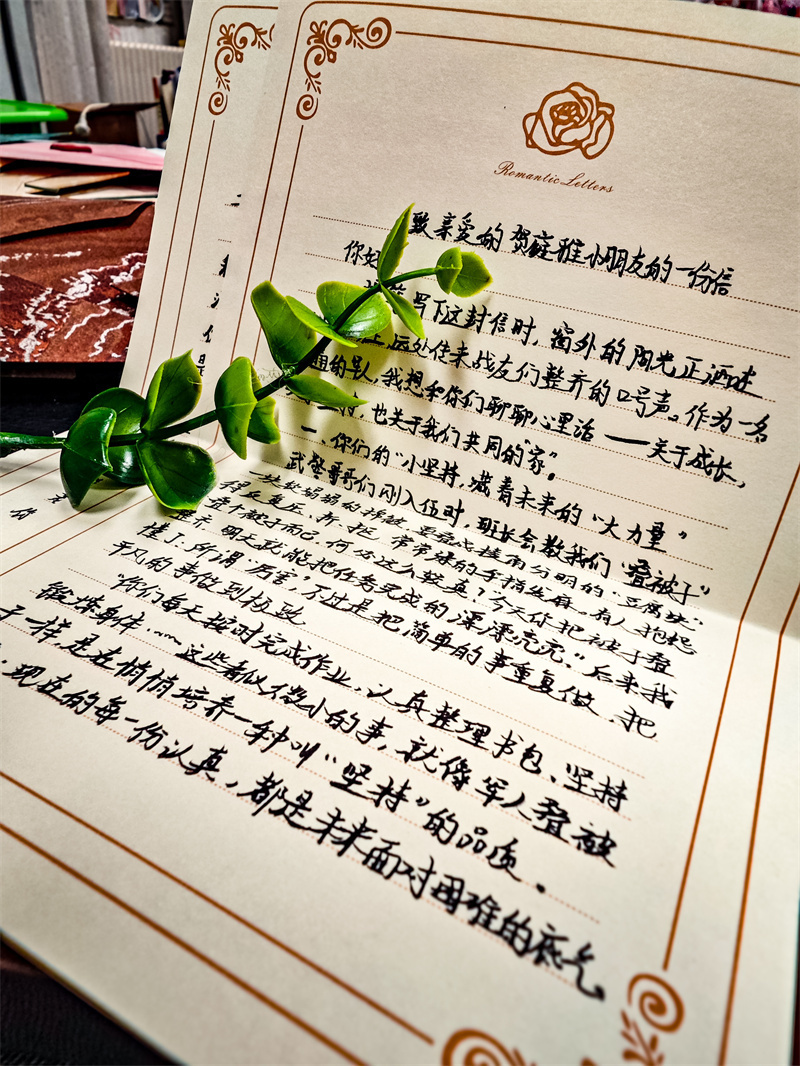 Romantic Letters
致亲爱的贺庭雅小朋友的一份信
你好
写下这封信时，窗外的阳光正洒进
上，远处传来战友们整齐的口号声。作为一名
通的军人，我想和你们聊聊心里话——关于成长，
关于坚持，也关于我们共同的“家”。
一、你们的“小坚持，藏着未来的“大力量”
武警哥哥们刚入伍时，班长会教我们“叠被子”
一块软绵绵的棉被，要叠成棱角分明的“豆腐块”
得反复压、折、抠，常常练的手指发麻。有人抱怨
叠个被子而已，何必这么较真？今天你把被子叠
整齐，明天就能把任务完成的漂漂亮亮。”后来我
懂了：所谓“厉害”，不过是把简单的事重复做，把
平凡的事做到极致
“你们每天按时完成作业、认真整理书包、坚持
锻炼身体……这些看似微小的事，就像军人叠被
子一样，是在悄悄培养一种叫“坚持”的品质。
现在的每一份认真，都是未来面对困难的底气。